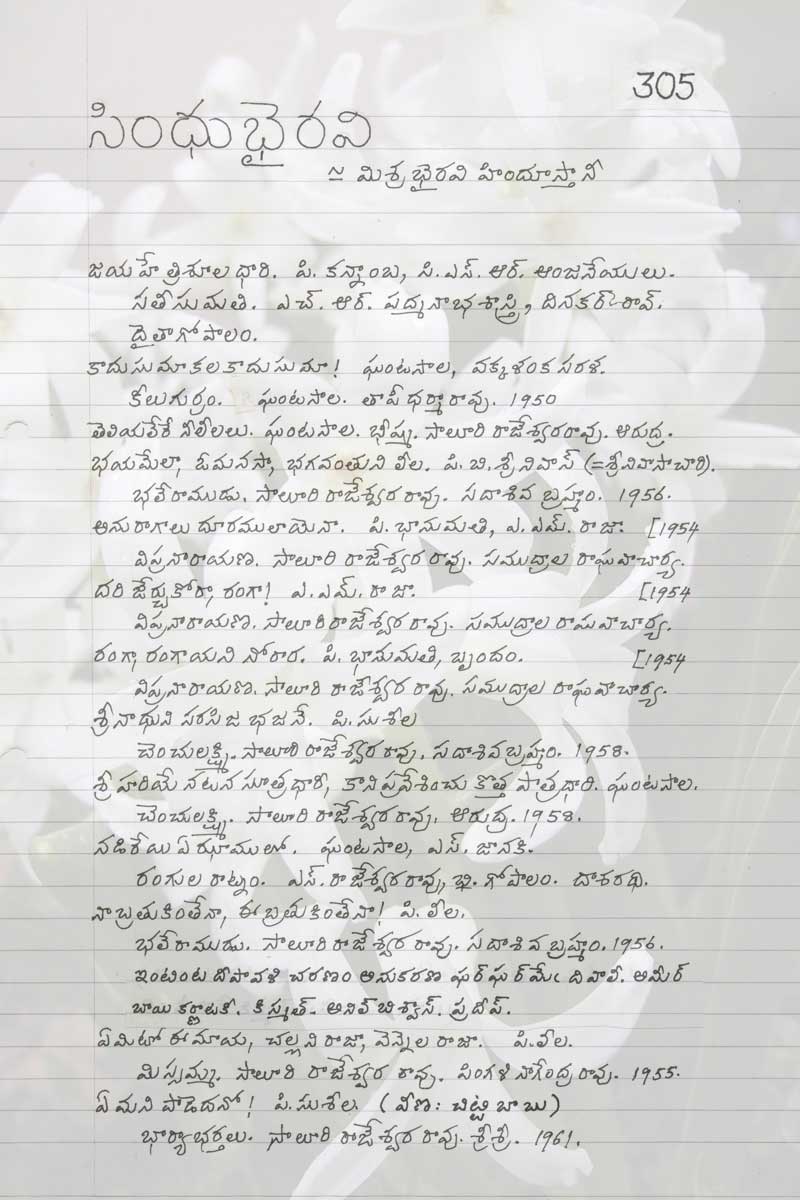 305
సింధుభైరవి
≃ మిశ్రభైరవి హిందూస్తానీ
జయహే త్రిశూలధారి. పి. కన్నాంబ, సి.ఎస్. ఆర్. ఆంజనేయులు.
సతీసుమతి. ఎచ్. ఆర్. పద్మనాభశాస్త్రి, దినకర్ రావ్.
దైతాగోపాలం.
కాదుసుమా కల కాదుసుమా! ఘంటసాల, వక్కళంక సరళ.
కీలుగుర్రం. ఘంటసాల. తాపీ ధర్మారావు. 1950
తెలియలేరే నీలీలలు. ఘంటసాల. భీష్మ. సాలూరి రాజేశ్వరరావు. ఆరుద్ర.
భయమేలా, ఓమనసా, భగవంతుని లీల. పి. బి. శ్రీనివాస్ (=శ్రీనివాసాచారి).
భలేరాముడు. సాలూరి రాజేశ్వరరావు. సదాశివ బ్రహ్మం. 1956.
అనురాగాలు దూరములాయెనా. పి. భానుమతి, ఎ. ఎమ్. రాజా. [1954
విప్రనారాయణ. సాలూరి రాజేశ్వర రావు. సముద్రాల రాఘవాచార్య.
దరి జేర్చుకోరా, రంగా! ఎ. ఎమ్. రాజా. [1954
విప్రనారాయణ. సాలూరి రాజేశ్వర రావు. సముద్రాల రాఘవాచార్య.
రంగా, రంగాయని నోరార. పి. భానుమతి, బృందం. [1954
విప్రనారాయణ. సాలూరి రాజేశ్వర రావు. సముద్రాల రాఘవాచార్య.
శ్రీనాథుని సరసిజ భజనే. పి. సుశీల
చెంచులక్ష్మి. సాలూరి రాజేశ్వర రావు. సదాశివ బ్రహ్మం. 1958.
శ్రీహరియే నటన సూత్రధారి, కాని ప్రవేశించు కొత్త పాత్రధారి. ఘంటసాల.
చెంచులక్ష్మి. సాలూరి రాజేశ్వరరావు. ఆరుద్ర. 1958.
నడిరేయి ఏ ఝాములో. ఘంటసాల, ఎస్. జానకి.
రంగుల రాట్నం. ఎస్. రాజేశ్వరరావు, బి. గోపాలం. దాశరథి.
నా బ్రతుకింతేనా, ఈ బ్రతుకింతేనా! పి. లీల.
భలేరాముడు. సాలూరి రాజేశ్వర రావు. సదాశివ బ్రహ్మం. 1956.
ఇంటింట దీపావళి చరణం అనుకరణ ఘర్ ఘర్ మేఁ దివాలీ. అమీర్
బాయి కర్ణాటకీ. కిస్మత్. అనిల్ బిశ్వాస్. ప్రదీప్.
ఏమిటో ఈ మాయ, చల్లని రాజా, వెన్నెల రాజా. పి. లీల.
మిస్సమ్మ. సాలూరి రాజేశ్వర రావు. పింగళి నాగేంద్ర రావు. 1955.
ఏమని పాడెదనో! పి. సుశీల. (వీణ: చిట్టి బాబు)
భార్యాభర్తలు. సాలూరి రాజేశ్వర రావు. శ్రీశ్రీ. 1961.